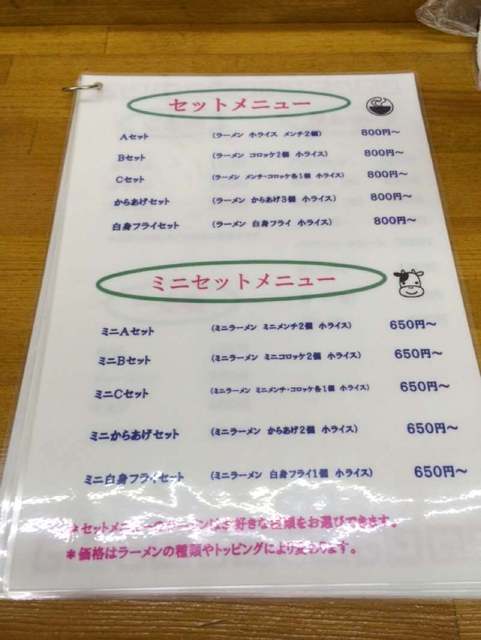 セットメニュー
Aセット (ラーメン 小ライス メンチ2個) 800円〜
Bセット (ラーメン コロッケ2個 小ライス) 800円〜
Cセット (ラーメン メンチ・コロッケ各1個 小ライス) 800円〜
からあげセット (ラーメン からあげ3個 小ライス) 800円〜
白身フライセット (ラーメン 白身フライ 小ライス) 800円〜
ミニセットメニュー
ミニAセット (ミニラーメン ミニメンチ2個 小ライス) 650円〜
ミニBセット (ミニラーメン ミニコロッケ2個 小ライス) 650円〜
ミニCセット (ミニラーメン ミニメンチ・コロッケ各1個 小ライス) 650円〜
ミニからあげセット (ミニラーメン からあげ2個 小ライス) 650円〜
ミニ白身フライセット (ミニラーメン 白身フライ1個 小ライス) 650円〜
*セットメニューのラーメンはお好きな種類をお選びできます。
*価格はラーメンの種類やトッピングにより変わります。